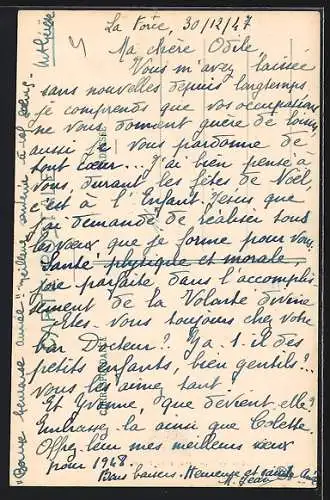 La Force, 30/12/47
Ma chère Odile
Vous m'avez laissée
sans nouvelles depuis longtemps
je comprends que vos occupations
ne vous donnent guère de loisirs,
aussi je vous pardonne de
tout cœur... J'ai bien pensé à
vous, durant les fêtes de Noël
c'est à l'Enfant Jésus que
j'ai demandé de réaliser tous
les vœux que je forme pour vous.
Santé physique et morale
joie parfaite dans l'accomplis-
sement de la Volonté divine
Etes-vous toujours chez votre
bon Docteur? Y a-t-il des
petits enfants, bien gentils?..
vous les aimez tant.
Et Yvonne, que devient-elle?
Embrassez-la ainsi que Colette.
Offrez-leur mes meilleurs vœux
pour 1948.
Bons baisers. Heureuse et sainte
"Bonne
année" meilleur souvenir à
ADRESSE
CORRESPONDANCE